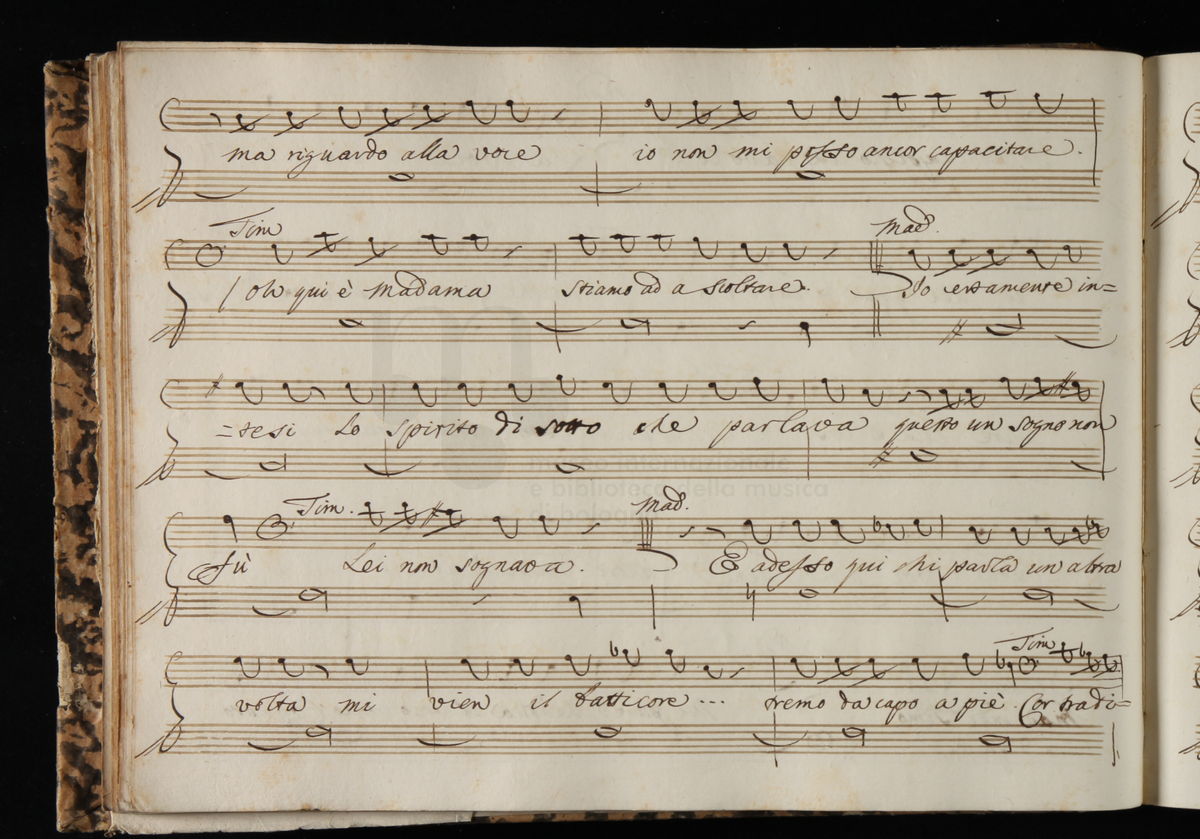 ma riguardo alla voce io non mi posso ancor capacitare.
Tim Mad.
/ oh qui è Madama stiamo ad ascoltare. Io certamente in=
=tesi Lo spirito di sotto che parlava questo un sogno non
Tim. Mad.
fù Lei non sognava. E adesso qui chi parla un altra
Tim
volta mi vien il batticore ... tremo da capo a piè. Cor tradi=
museo internazionale
e biblioteca della musica
di bologna